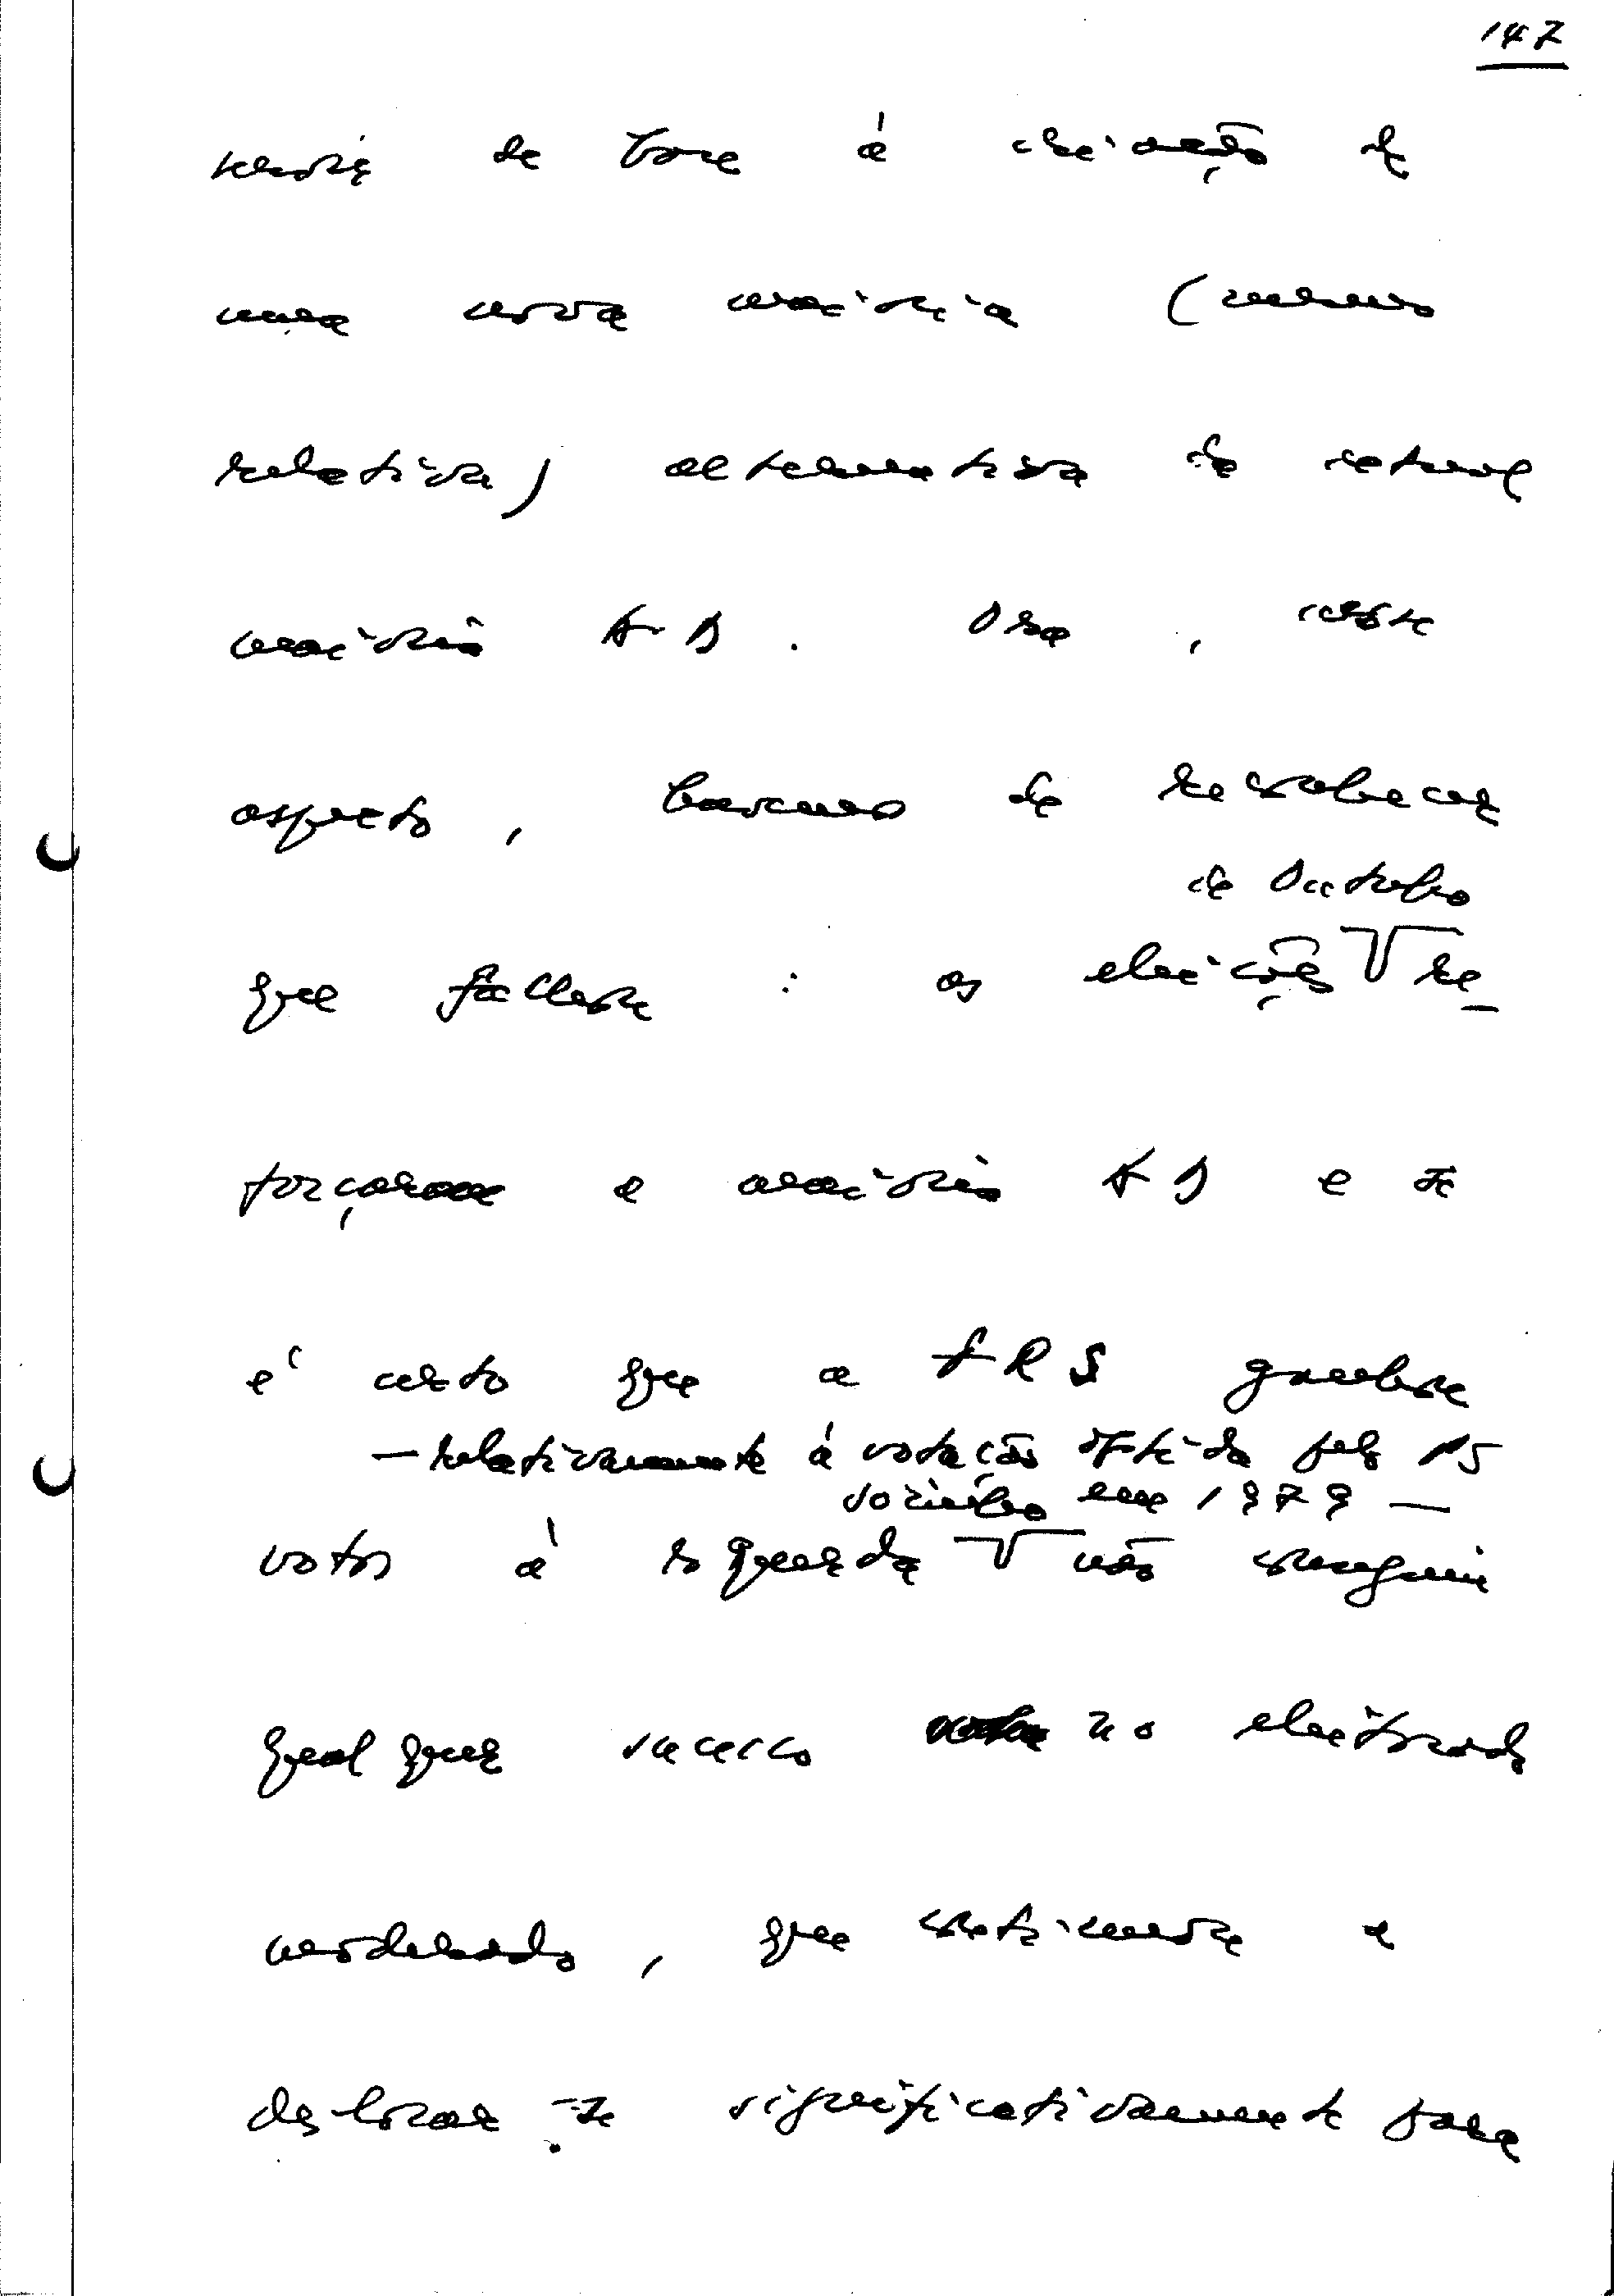 147
serviria de base à criação de
uma nova maioria (mesmo
relativa) alternativa da actual
maioria AD. Ora, neste
aspecto, houve de reconhecer
que falhou: as eleições de Outubro re-
forçaram a maioria AD e se
é certo que a FRS ganhou
votos à esquerda — relativamente à votação obtida pelo PS
sozinho em 1979 — não conseguiu
qualquer sucesso no eleitorado
moderado, que continuou a
deslocar-se significativamente para